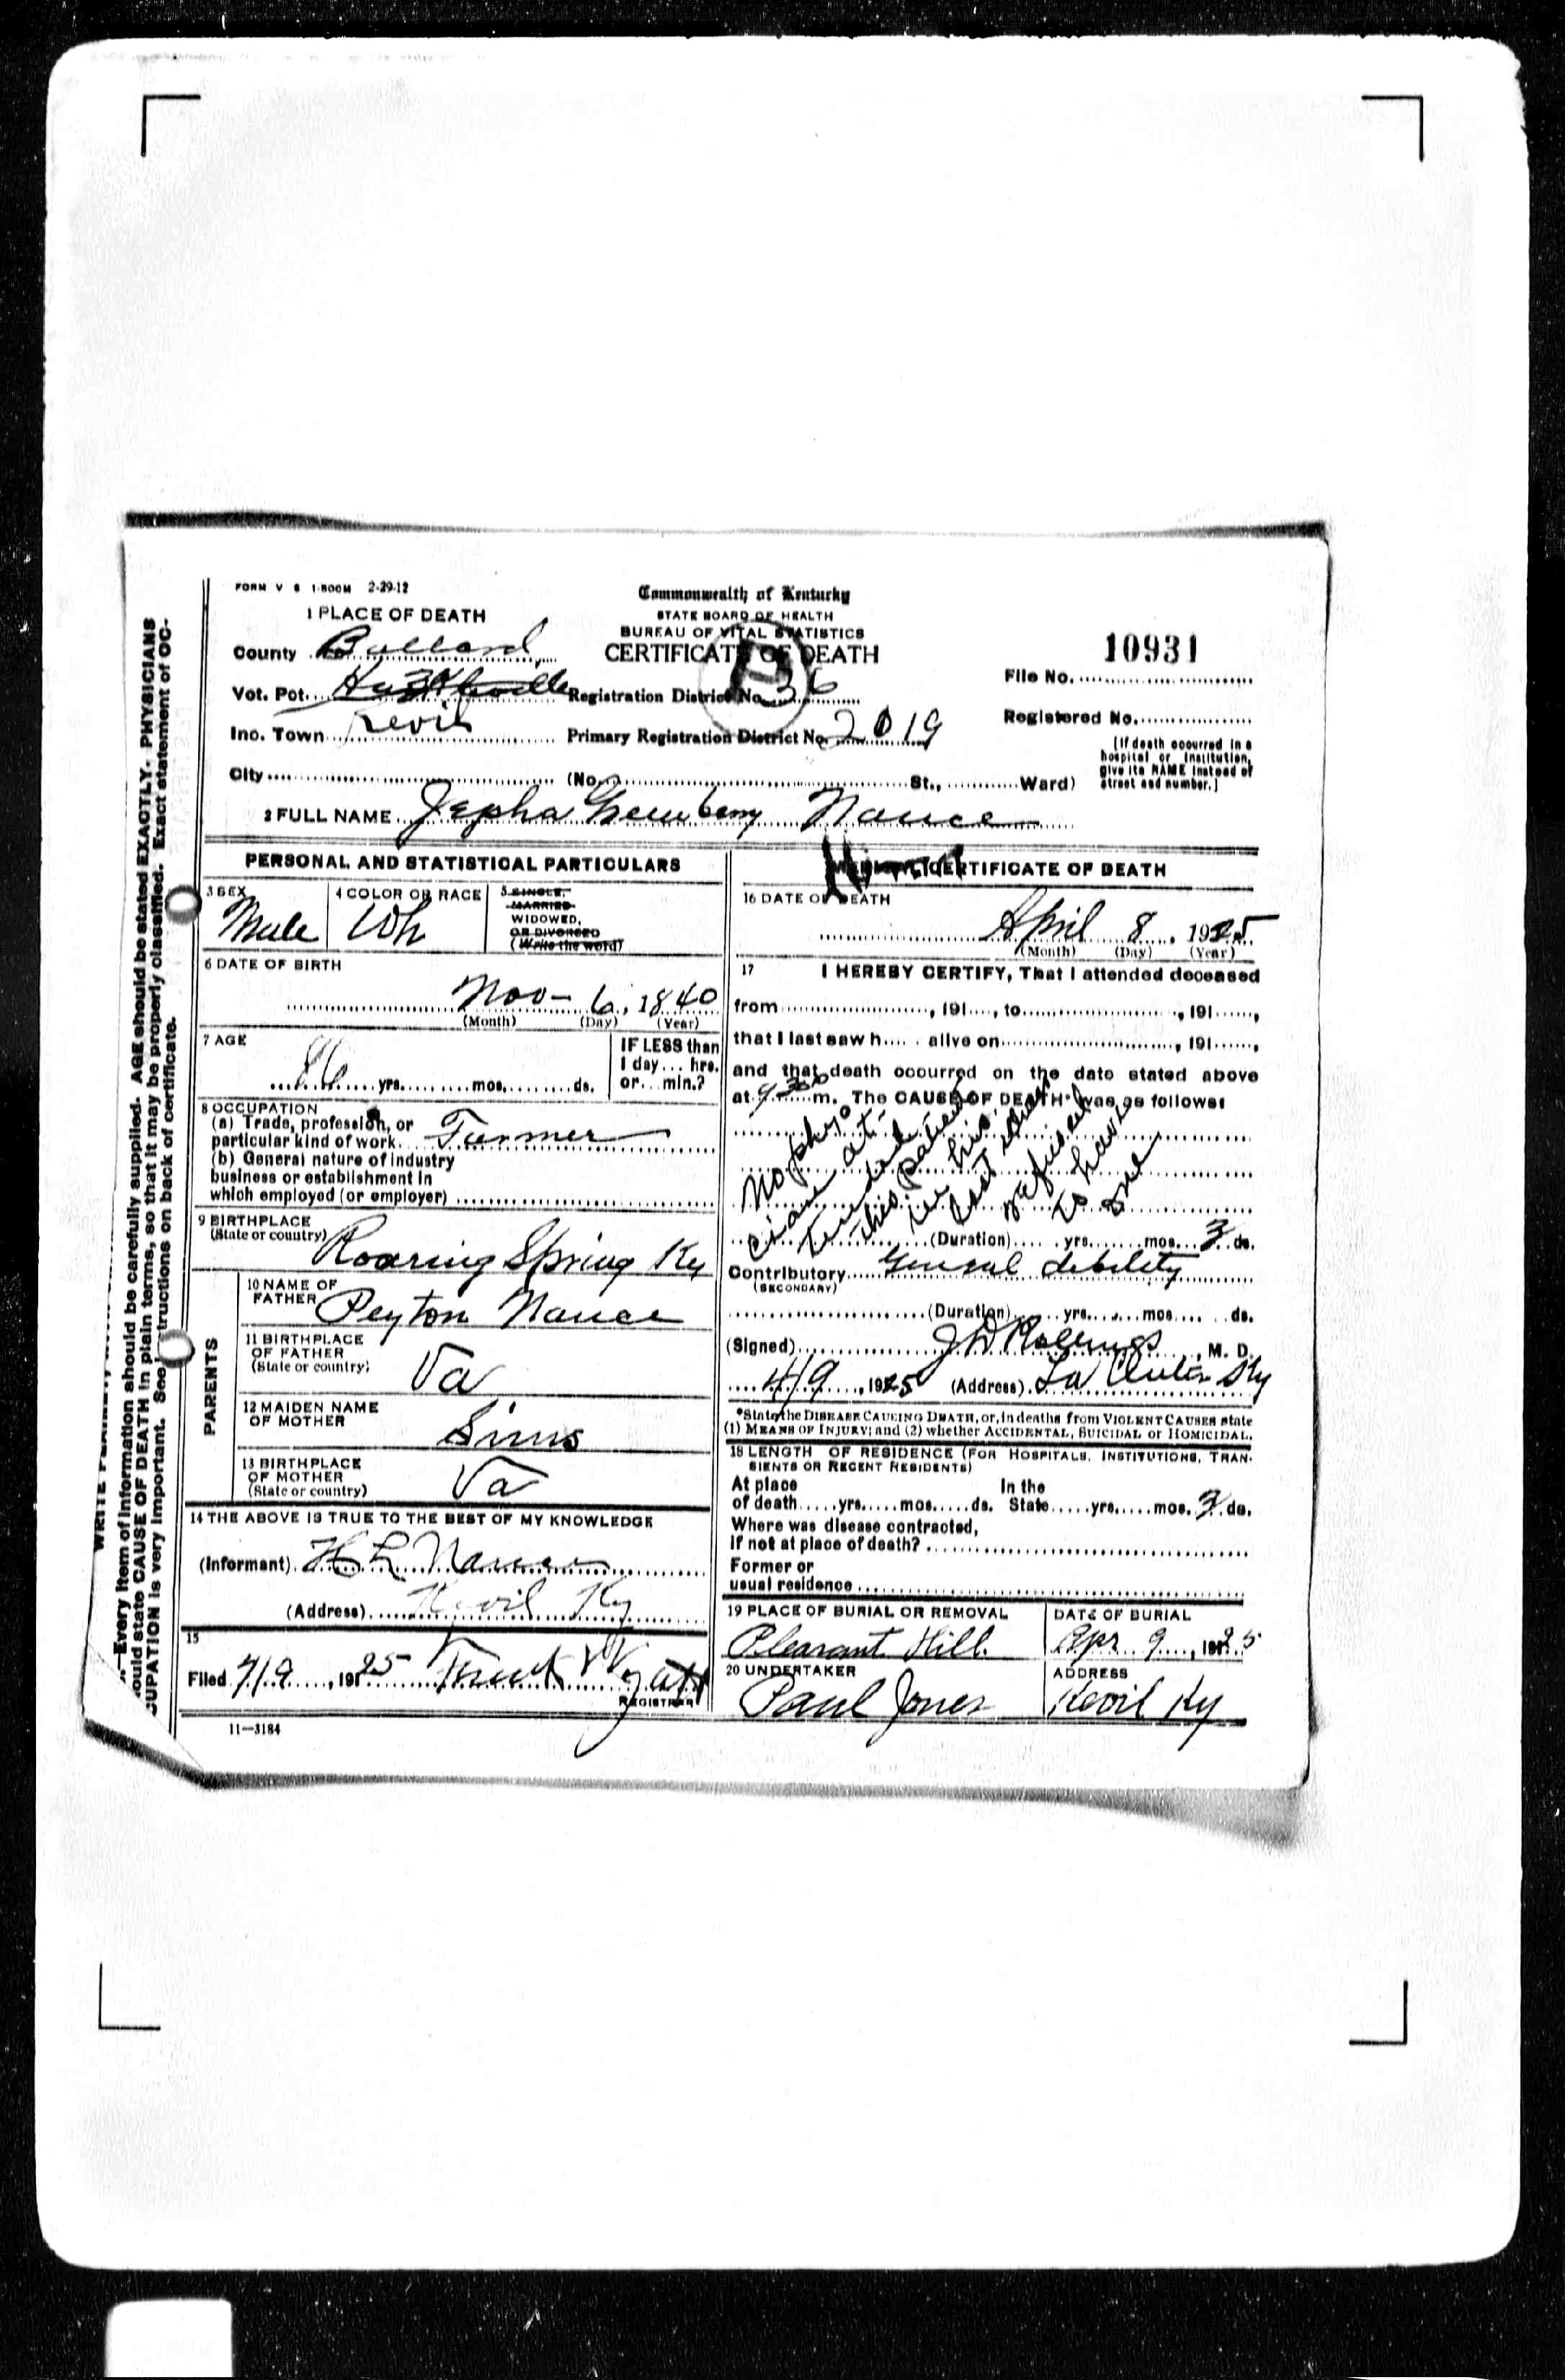 FORM V S 1-500M 2-29-12
Commonwealth of Kentucky
STATE BOARD OF HEALTH
BUREAU OF VITAL STATISTICS
CERTIFICATE OF DEATH
1 PLACE OF DEATH
County Ballard
Vot. Pct.
Registration District No. 36
Inc. Town Kevil
Primary Registration District No. 2019
City (No. St., Ward)
10931
File No.
Registered No.
[If death occurred in a
hospital or institution,
give its NAME instead of
street and number.]
2 FULL NAME Jepha Greenberry Nance
PERSONAL AND STATISTICAL PARTICULARS
3 SEX
Male
4 COLOR OR RACE
Wh
5 SINGLE,
MARRIED
WIDOWED,
OR DIVORCED
(Write the word)
6 DATE OF BIRTH
Nov- 6, 1840
(Month) (Day) (Year)
7 AGE
86 yrs. mos. ds.
IF LESS than
1 day... hrs.
or... min.?
8 OCCUPATION
(a) Trade, profession, or
particular kind of work Farmer
(b) General nature of industry
business or establishment in
which employed (or employer)
9 BIRTHPLACE
(State or country)
Roaring Spring Ky
PARENTS
10 NAME OF
FATHER Peyton Nance
11 BIRTHPLACE
OF FATHER
(State or country)
Va
12 MAIDEN NAME
OF MOTHER
Sims
13 BIRTHPLACE
OF MOTHER
(State or country)
Va
14 THE ABOVE IS TRUE TO THE BEST OF MY KNOWLEDGE
(Informant) H L Nance
(Address) Kevil Ky
15
Filed 4/9, 1925 Wyatt
REGISTRAR
11-3184
CERTIFICATE OF DEATH
16 DATE OF DEATH
April 8, 1925
(Month) (Day) (Year)
17 I HEREBY CERTIFY, That I attended deceased
from , 191 , to , 191 ,
that I last saw h alive on , 191 ,
and that death occurred on the date stated above
at 930 m. The CAUSE OF DEATH* was as follows:
No physi
cian at-
tended
this patient
in his
last illness
refused
to have
one
(Duration) yrs. mos. 3 ds.
Contributory General debility
(SECONDARY)
(Duration) yrs. mos. ds.
(Signed) J D Rollings, M. D.
4/9, 1925 (Address) La Center Ky
*State the DISEASE CAUSING DEATH, or, in deaths from VIOLENT CAUSES state
(1) MEANS OF INJURY; and (2) whether ACCIDENTAL, SUICIDAL or HOMICIDAL.
18 LENGTH OF RESIDENCE (FOR HOSPITALS, INSTITUTIONS, TRAN-
SIENTS OR RECENT RESIDENTS)
At place In the
of death yrs. mos. ds. State yrs. mos. 3 ds.
Where was disease contracted,
If not at place of death?
Former or
usual residence
19 PLACE OF BURIAL OR REMOVAL
Pleasant Hill
DATE OF BURIAL
Apr 9, 1925
20 UNDERTAKER
Paul Jones
ADDRESS
Kevil Ky
Every item of information should be carefully supplied. AGE should be stated EXACTLY. PHYSICIANS
should state CAUSE OF DEATH in plain terms, so that it may be properly classified. Exact statement of OC-
CUPATION is very important. See instructions on back of certificate.